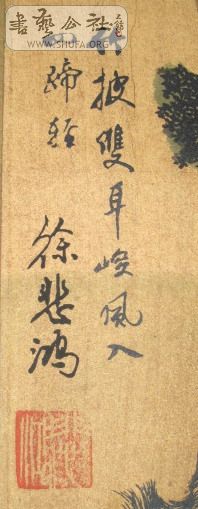 書藝公社
WWW.SHUFA.ORG
竹披雙耳峻風入
四蹄輕
徐悲鴻